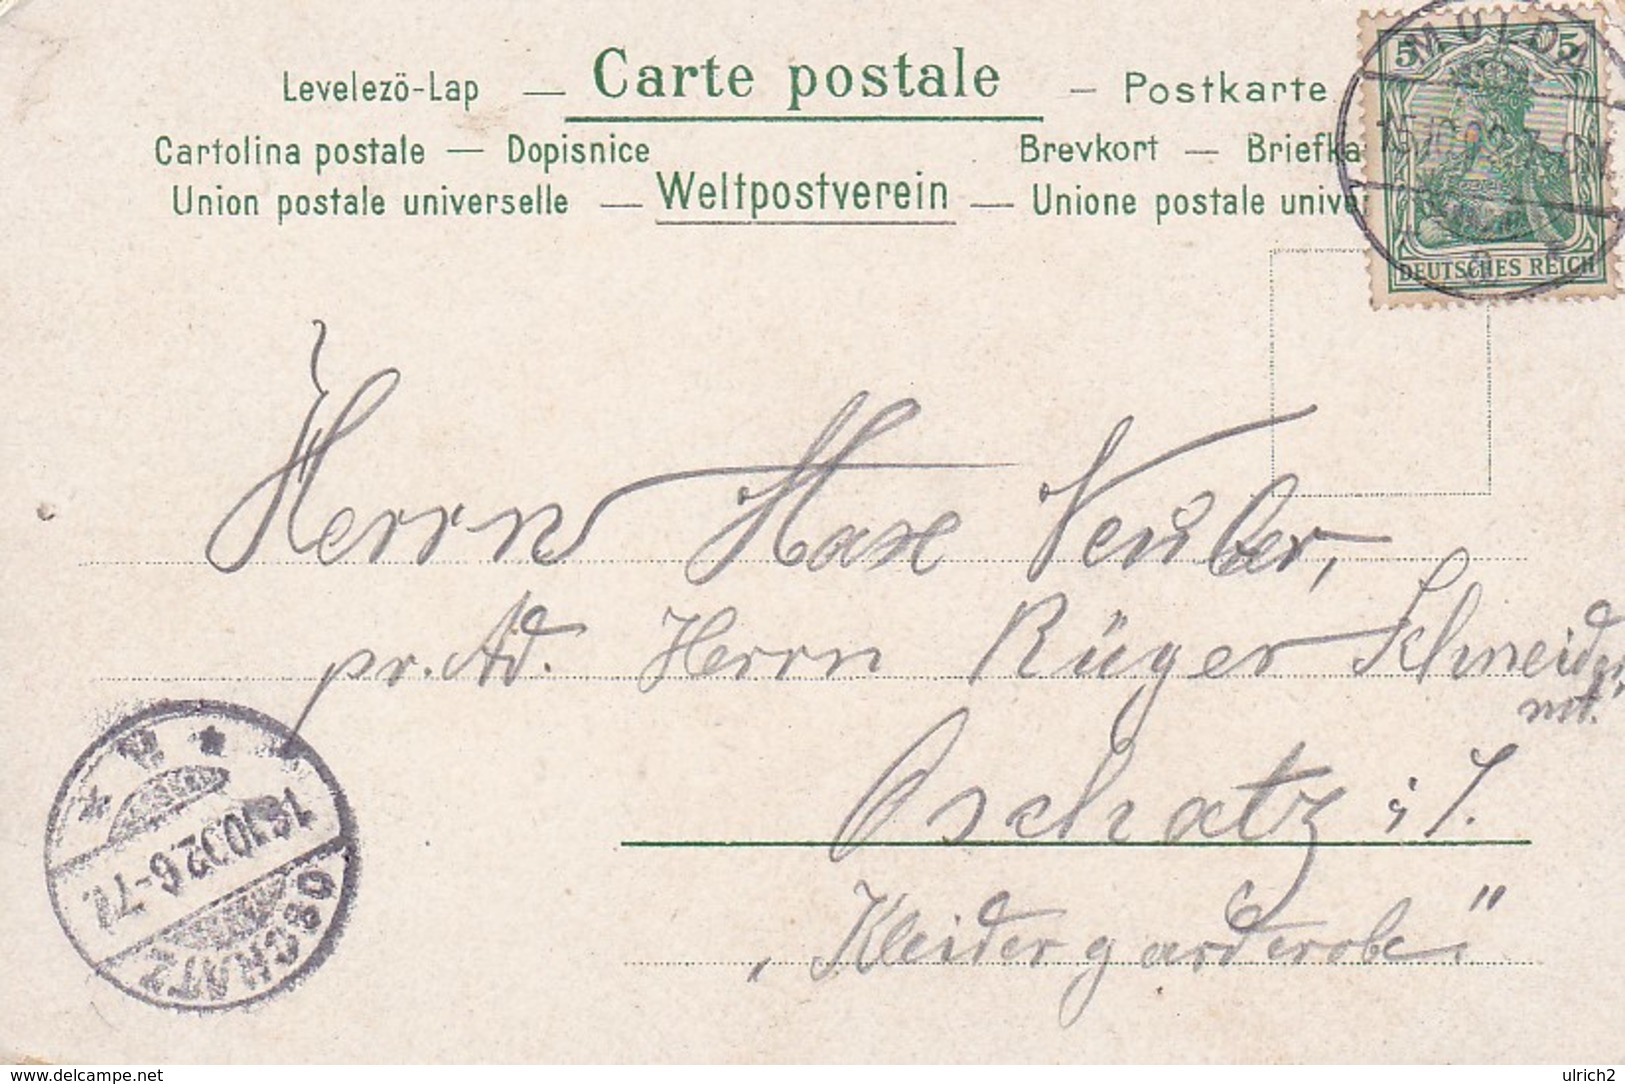 Levelezö-Lap — Carte postale — Postkarte
Cartolina postale — Dopisnice Brevkort — Briefka
Union postale universelle — Weltpostverein — Unione postale unive
5 5
DEUTSCHES REICH
Herrn Max Neuber,
pr. Ad. Herrn Rüger Schneider
mt.
Oschatz i/S.
"Kleidergarderobe"
16.10.02 6-7V.
OSCHATZ
delcampe.net
ulrich2